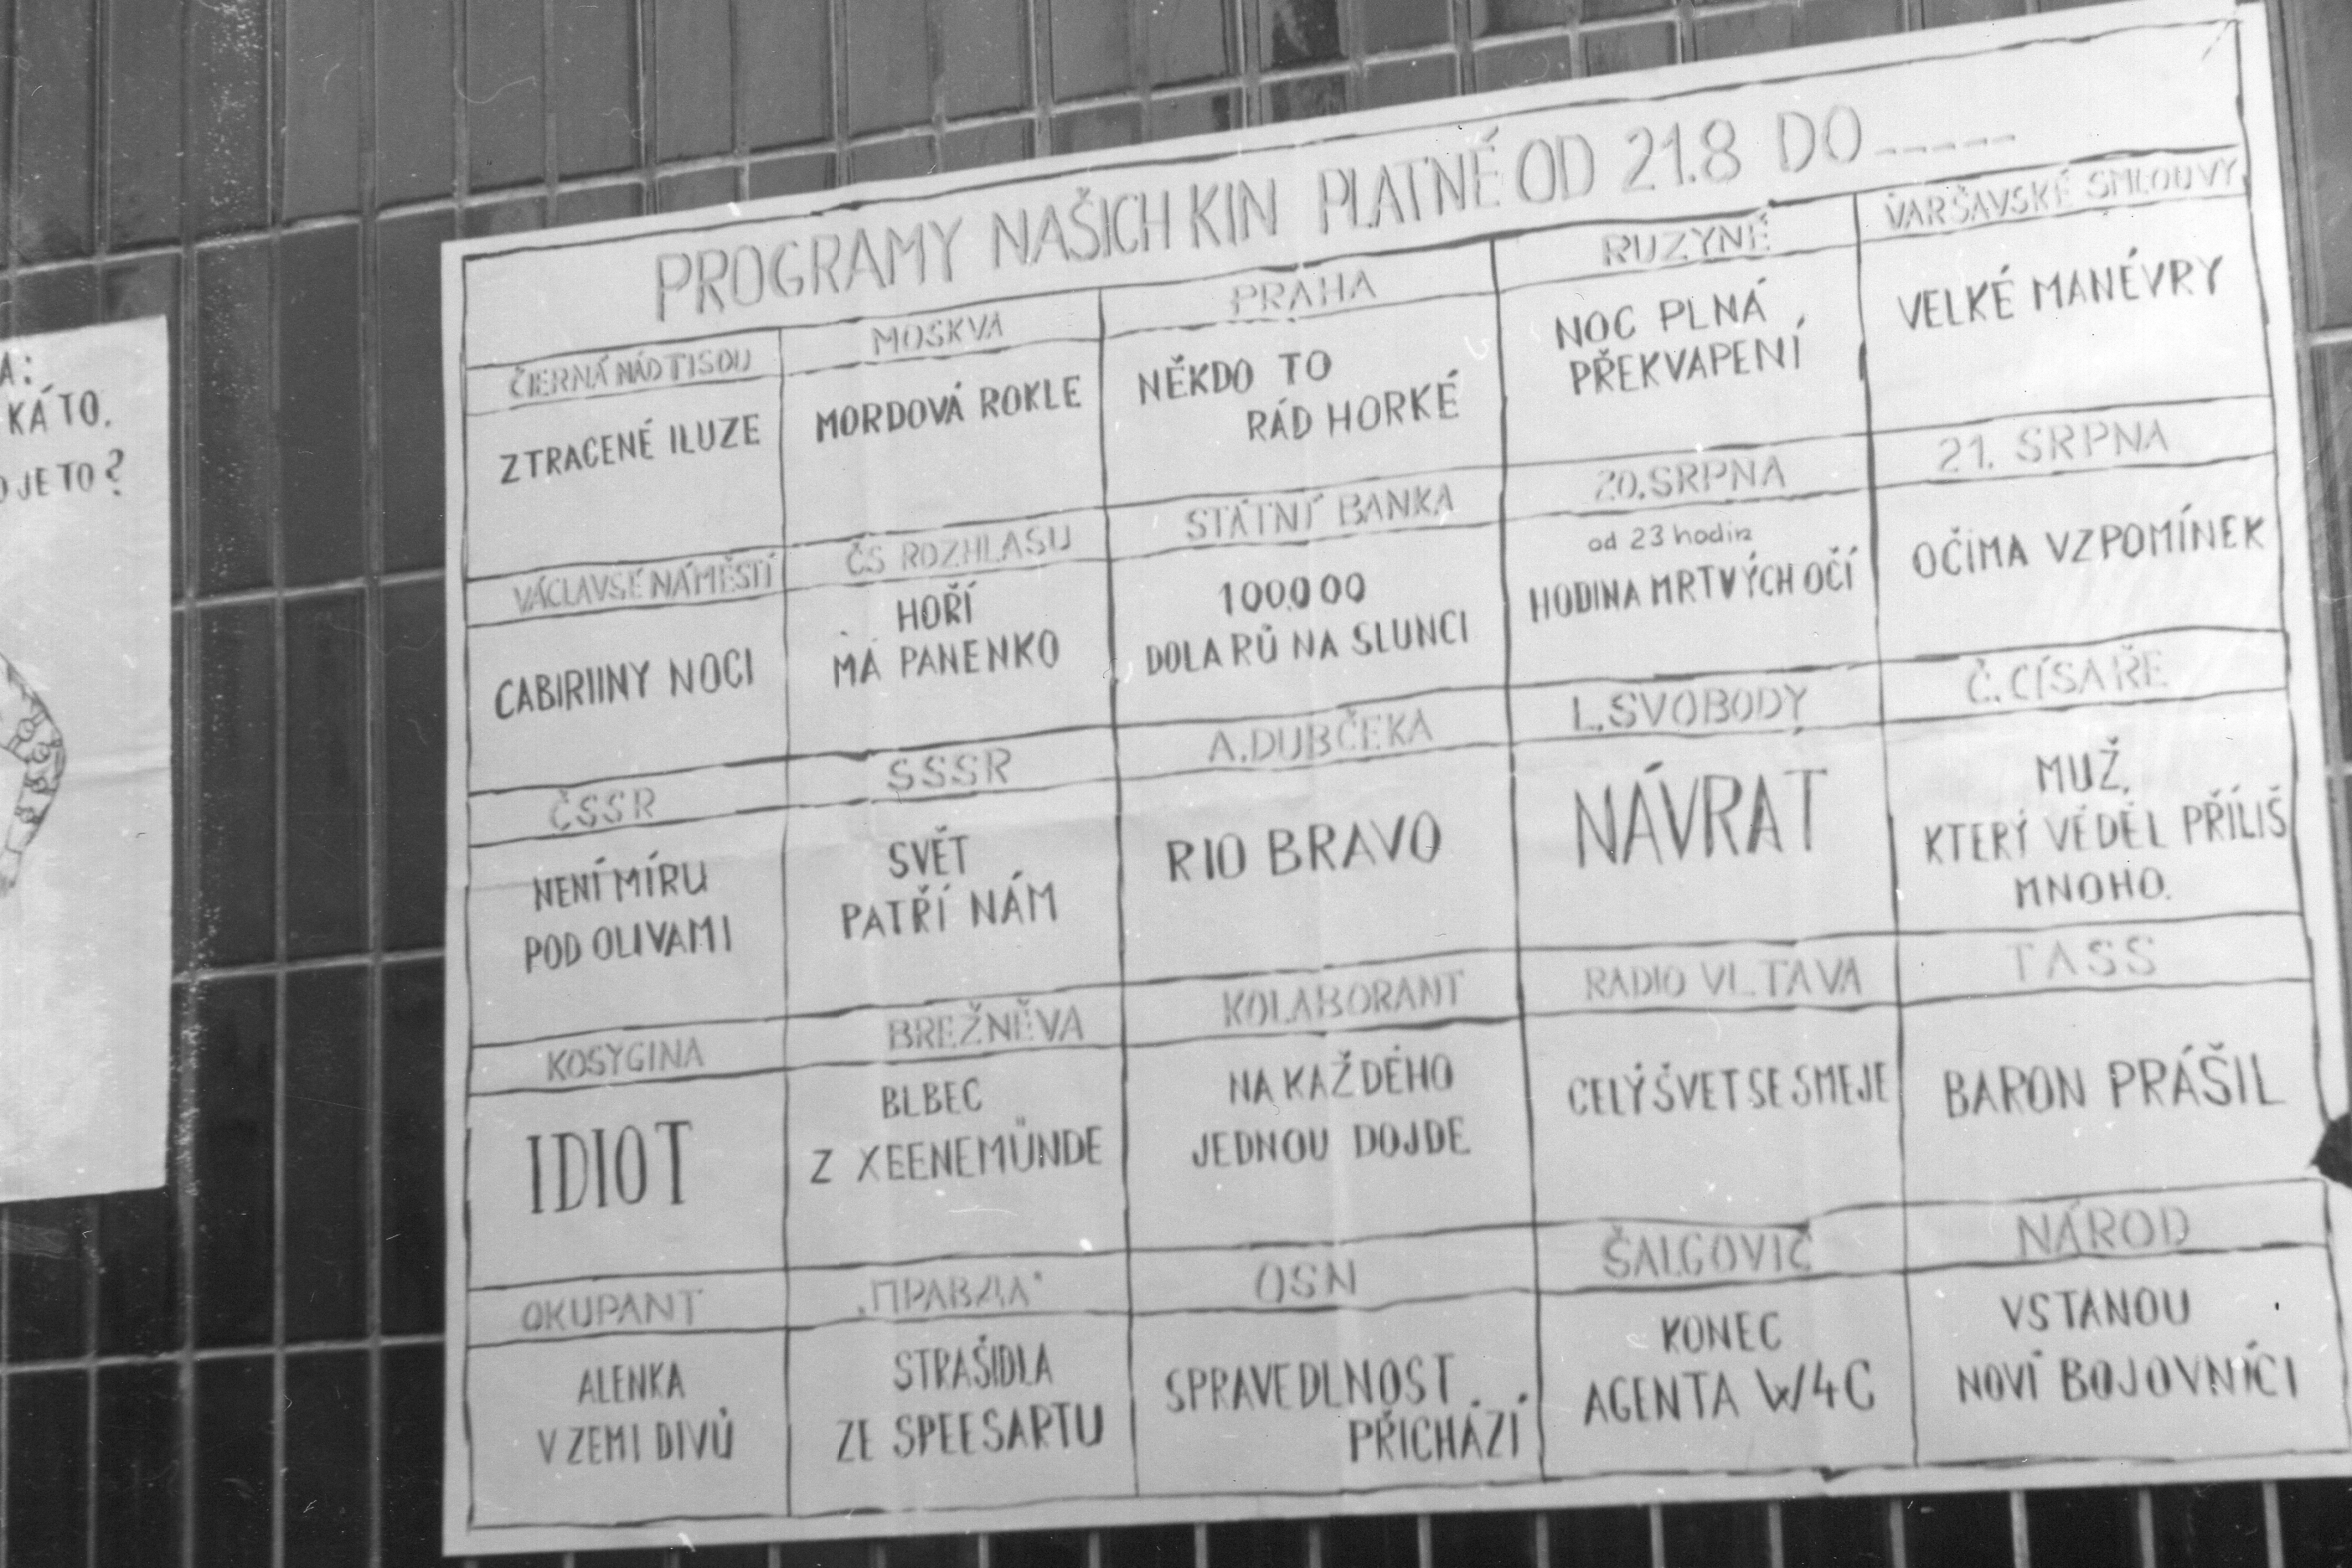 A:
KÁ TO.
JE TO?
PROGRAMY NAŠICH KIN PLATNÉ OD 21.8 DO -----
ČIERNÁ NAD TISOU
ZTRACENÉ ILUZE
MOSKVA
MORDOVÁ ROKLE
PRAHA
NĚKDO TO
RÁD HORKÉ
RUZYNĚ
NOC PLNÁ
PŘEKVAPENÍ
VARŠAVSKÉ SMLOUVY
VELKÉ MANÉVRY
VÁCLAVSÉ NÁMĚSTÍ
CABIRIINY NOCI
ČS ROZHLASU
HOŘÍ
MÁ PANENKO
STÁTNÍ BANKA
100.000
DOLARŮ NA SLUNCI
20. SRPNA
od 23 hodin
HODINA MRTVÝCH OČÍ
21. SRPNA
OČIMA VZPOMÍNEK
ČSSR
NENÍ MÍRU
POD OLIVAMI
SSSR
SVĚT
PATŘÍ NÁM
A. DUBČEKA
RIO BRAVO
L. SVOBODY
NÁVRAT
Č. CÍSAŘE
MUŽ,
KTERÝ VĚDĚL PŘÍLIŠ
MNOHO.
KOSYGINA
IDIOT
BREŽNĚVA
BLBEC
Z XEENEMÜNDE
KOLABORANT
NA KAŽDÉHO
JEDNOU DOJDE
RADIO VLTAVA
CELÝ ŠVET SE SMEJE
TASS
BARON PRÁŠIL
OKUPANT
ALENKA
V ZEMI DIVŮ
„ПРАВДА"
STRAŠIDLA
ZE SPEESARTU
OSN
SPRAVEDLNOST
PŘICHÁZÍ
ŠALGOVIČ
KONEC
AGENTA W4C
NÁROD
VSTANOU
NOVÍ BOJOVNÍCI